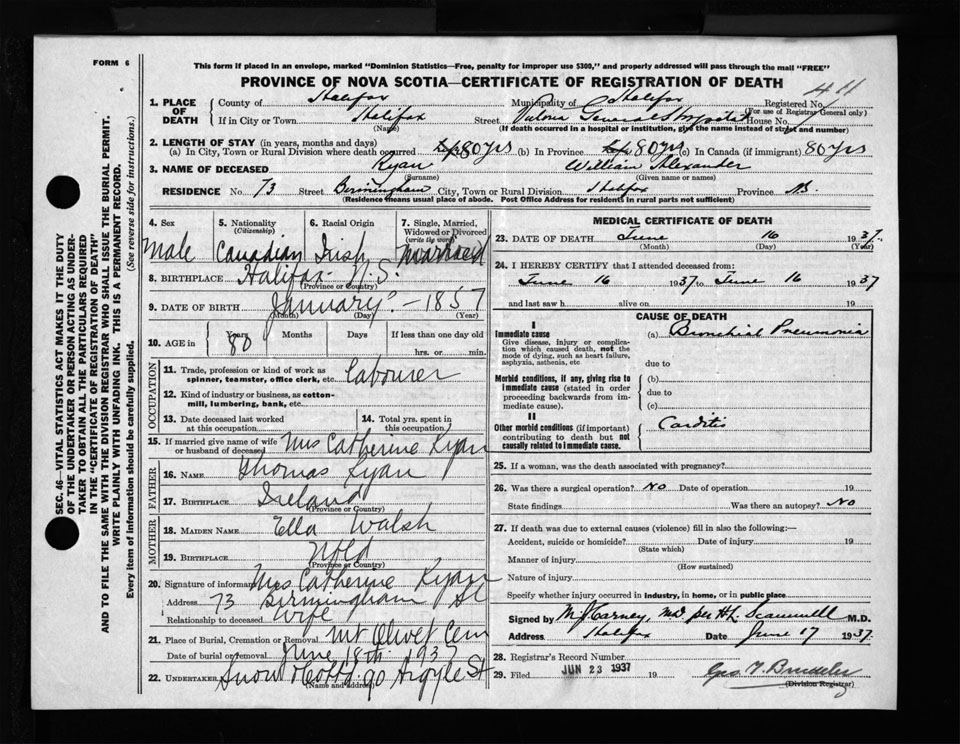 FORM 6
This form if placed in an envelope, marked "Dominion Statistics—Free, penalty for improper use $300," and property addressed will pass through the mail "FREE"
PROVINCE OF NOVA SCOTIA—CERTIFICATE OF REGISTRATION OF DEATH
411
1. PLACE OF DEATH { County of Halifax Municipality of Halifax Registered No.
(For use of Registrar General only)
If in City or Town Halifax Street Victoria General Hospital House No.
(Name) (If death occurred in a hospital or institution, give the name instead of street and number)
2. LENGTH OF STAY (in years, months and days)
(a) In City, Town or Rural Division where death occurred 80 yrs (b) In Province 80 yrs (c) In Canada (if immigrant) 80 yrs
3. NAME OF DECEASED Ryan William Alexander
(Surname) (Given name or names)
RESIDENCE No. 73 Street Birmingham City, Town or Rural Division Halifax Province N.S.
(Residence means usual place of abode. Post Office Address for residents in rural parts not sufficient)
4. Sex 5. Nationality (Citizenship) 6. Racial Origin 7. Single, Married, Widowed or Divorced (write the word)
Male Canadian Irish Married
8. BIRTHPLACE Halifax N.S.
(Province or Country)
9. DATE OF BIRTH January ? – 1857
(Month) (Day) (Year)
10. AGE in { Years Months Days If less than one day old
80 hrs. or min.
OCCUPATION
11. Trade, profession or kind of work as spinner, teamster, office clerk, etc. Labourer
12. Kind of industry or business, as cotton-mill, lumbering, bank, etc.
13. Date deceased last worked at this occupation 14. Total yrs. spent in this occupation
15. If married give name of wife or husband of deceased Mrs Catherine Ryan
FATHER
16. NAME Thomas Ryan
17. BIRTHPLACE Ireland
(Province or Country)
MOTHER
18. MAIDEN NAME Ella Walsh
19. BIRTHPLACE Nfld
(Province or Country)
20. Signature of informant Mrs Catherine Ryan
Address 73 Birmingham St
Relationship to deceased Wife
21. Place of Burial, Cremation or Removal Mt Olivet Cem
Date of burial or removal June 18th 1937
22. UNDERTAKER Snow & Co Ltd. 90 Argyle St
(Name and address)
MEDICAL CERTIFICATE OF DEATH
23. DATE OF DEATH June 16 1937.
(Month) (Day) (Year)
24. I HEREBY CERTIFY that I attended deceased from
June 16 1937 to June 16 1937
and last saw h alive on 19
CAUSE OF DEATH
I
Immediate cause (a) Bronchial Pneumonia
Give disease, injury or complication which caused death, not the mode of dying, such as heart failure, asphyxia, asthenia, etc
due to
Morbid conditions, if any, giving rise to immediate cause (stated in order proceeding backwards from immediate cause).
(b)
due to
(c)
II
Other morbid conditions (if important) contributing to death but not causally related to immediate cause.
Carditis
25. If a woman, was the death associated with pregnancy?
26. Was there a surgical operation? No Date of operation 19
State findings Was there an autopsy? No
27. If death was due to external causes (violence) fill in also the following:—
Accident, suicide or homicide? Date of injury 19
(State which)
Manner of injury
(How sustained)
Nature of injury
Specify whether injury occurred in industry, in home, or in public place
Signed by M.J. Carney, MD per H. Scammell M.D.
Address Halifax Date June 17 1937.
28. Registrar's Record Number
29. Filed JUN 23 1937 19
(Division Registrar)
SEC. 46—VITAL STATISTICS ACT MAKES IT THE DUTY
OF THE UNDERTAKER OR PERSON ACTING AS UNDERTAKER TO OBTAIN ALL THE PARTICULARS REQUIRED
IN THE "CERTIFICATE OF REGISTRATION OF DEATH"
AND TO FILE THE SAME WITH THE DIVISION REGISTRAR WHO SHALL ISSUE THE BURIAL PERMIT.
WRITE PLAINLY WITH UNFADING INK. THIS IS A PERMANENT RECORD.
Every item of information should be carefully supplied. (See reverse side for instructions.)